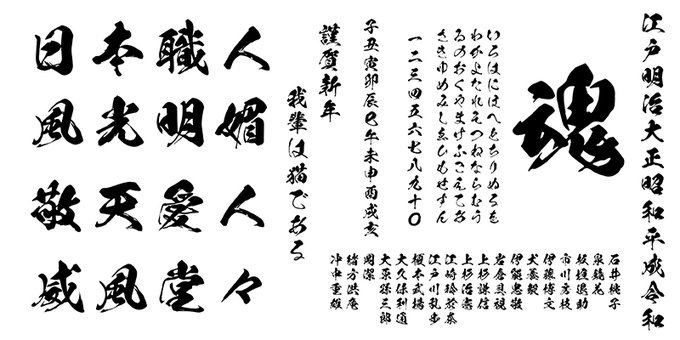 江戸明治大正昭和平成令和
魂
石井桃子
泉鏡花
板垣退助
市川房枝
伊藤博文
犬養毅
伊能忠敬
岩倉具視
上杉謙信
上杉治憲
江崎玲於奈
江戸川乱歩
榎本武揚
大久保利通
大原孫三郎
岡潔
緒方洪庵
沖中重雄
いろはにほへとちりぬるを
わかよたれそつねならむう
ゐのおくやまけふこえてあ
さきゆめみしゑひもせすん
一二三四五六七八九十〇
子丑寅卯辰巳午未申酉戌亥
謹賀新年
我輩は猫である
日本職人
風光明媚
敬天愛人
威風堂々